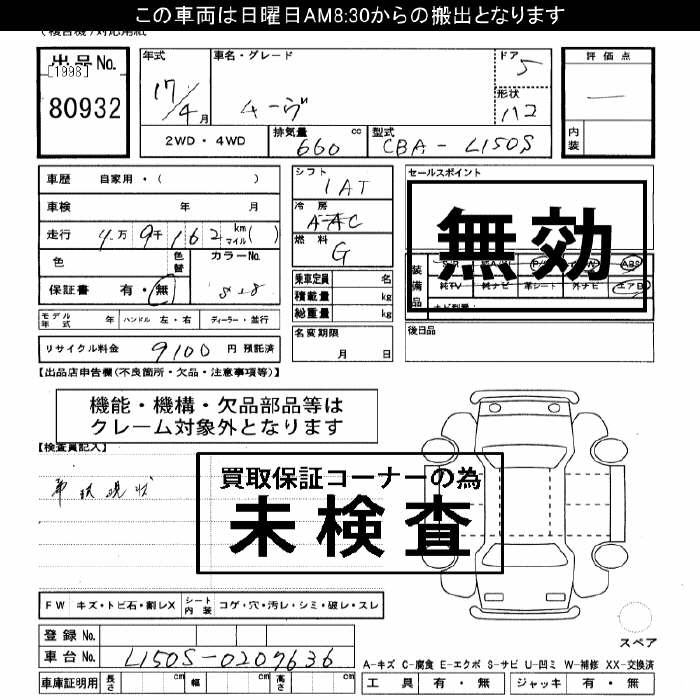 この車両は日曜日AM8:30からの搬出となります
出品No.
[1998]
80932
年式
17/4月
車名・グレード
ムーヴ
ドア
5
形状
112
評価点
—
内装
2WD・4WD
排気量
660 cc
型式
CBA-L150S
車歴 自家用・( )
車検 年 月
走行 万9千162 km マイル( )
色 色替 カラーNo.
保証書 有・無
モデル年式 年 ハンドル 左・右 ディーラー・並行
リサイクル料金 9100 円 預託済
シフト
IAT
冷房
AAC
燃料
G
乗車定員 名
積載量 kg
総重量 kg
名変期限
月 日
セールスポイント
無効
装備品
ABS
純TV 純ナビ 革シート 外ナビ エアB
後日品
【出品店申告欄(不良箇所・欠品・注意事項等)】
機能・機構・欠品部品等は
クレーム対象外となります
【検査員記入】
車状現状
買取保証コーナーの為
未検査
FW キズ・トビ石・割レX シート内装 コゲ・穴・汚レ・シミ・破レ・スレ
登録No.
車台No. L150S-0207636
車庫証明用 長さ cm 幅 cm 高さ cm
スペア
A-キズ C-腐食 E-エクボ S-サビ U-凹ミ W-補修 XX-交換済
工具 有・無 ジャッキ 有・無